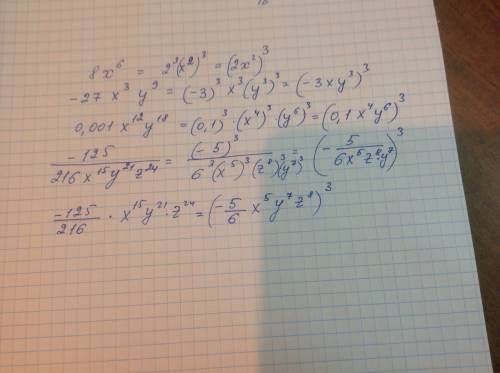 8x⁶ = 2³(x²)³ = (2x²)³
-27 x³ y⁹ = (-3)³ x³ (y³)³ = (-3xy³)³
0,001 x¹²y¹⁸ = (0,1)³ · (x⁴)³ · (y⁶)³ = (0,1 x⁴y⁶)³
-125 / 216x¹⁵y²¹z²⁴ = (-5)³ / 6³(x⁵)³(z⁸)³(y⁷)³ = (- 5 / 6x⁵z⁸y⁷)³
-125 / 216 · x¹⁵y²¹ · z²⁴ = (-5/6 x⁵y⁷z⁸)³